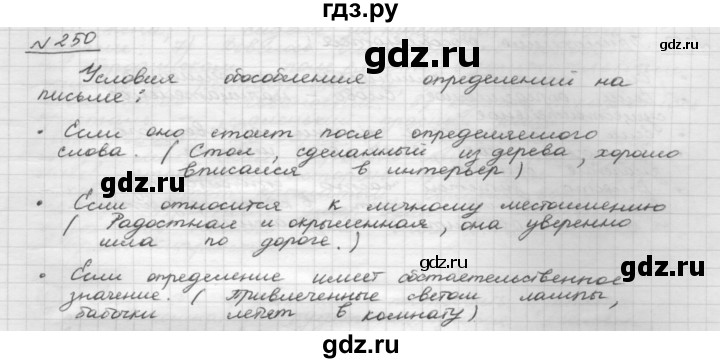 гдз.ру
№ 250
gdz.ru
gdz.ru
Условия обособления определений на
письме:
• Если оно стоит после определяемого
слова. ( Стол, сделанный из дерева, хорошо
gdz.ru
вписался в интерьер)
gdz.ru
• Если относится к личному местоимению
( Радостная и окрыленная, она уверенно
шла по дороге.)
gdz.ru
• Если определение имеет обстоятельственное
значение. ( Привлеченные светом лампы,
бабочки летят в комнату)
gdz.ru
gdz.ru